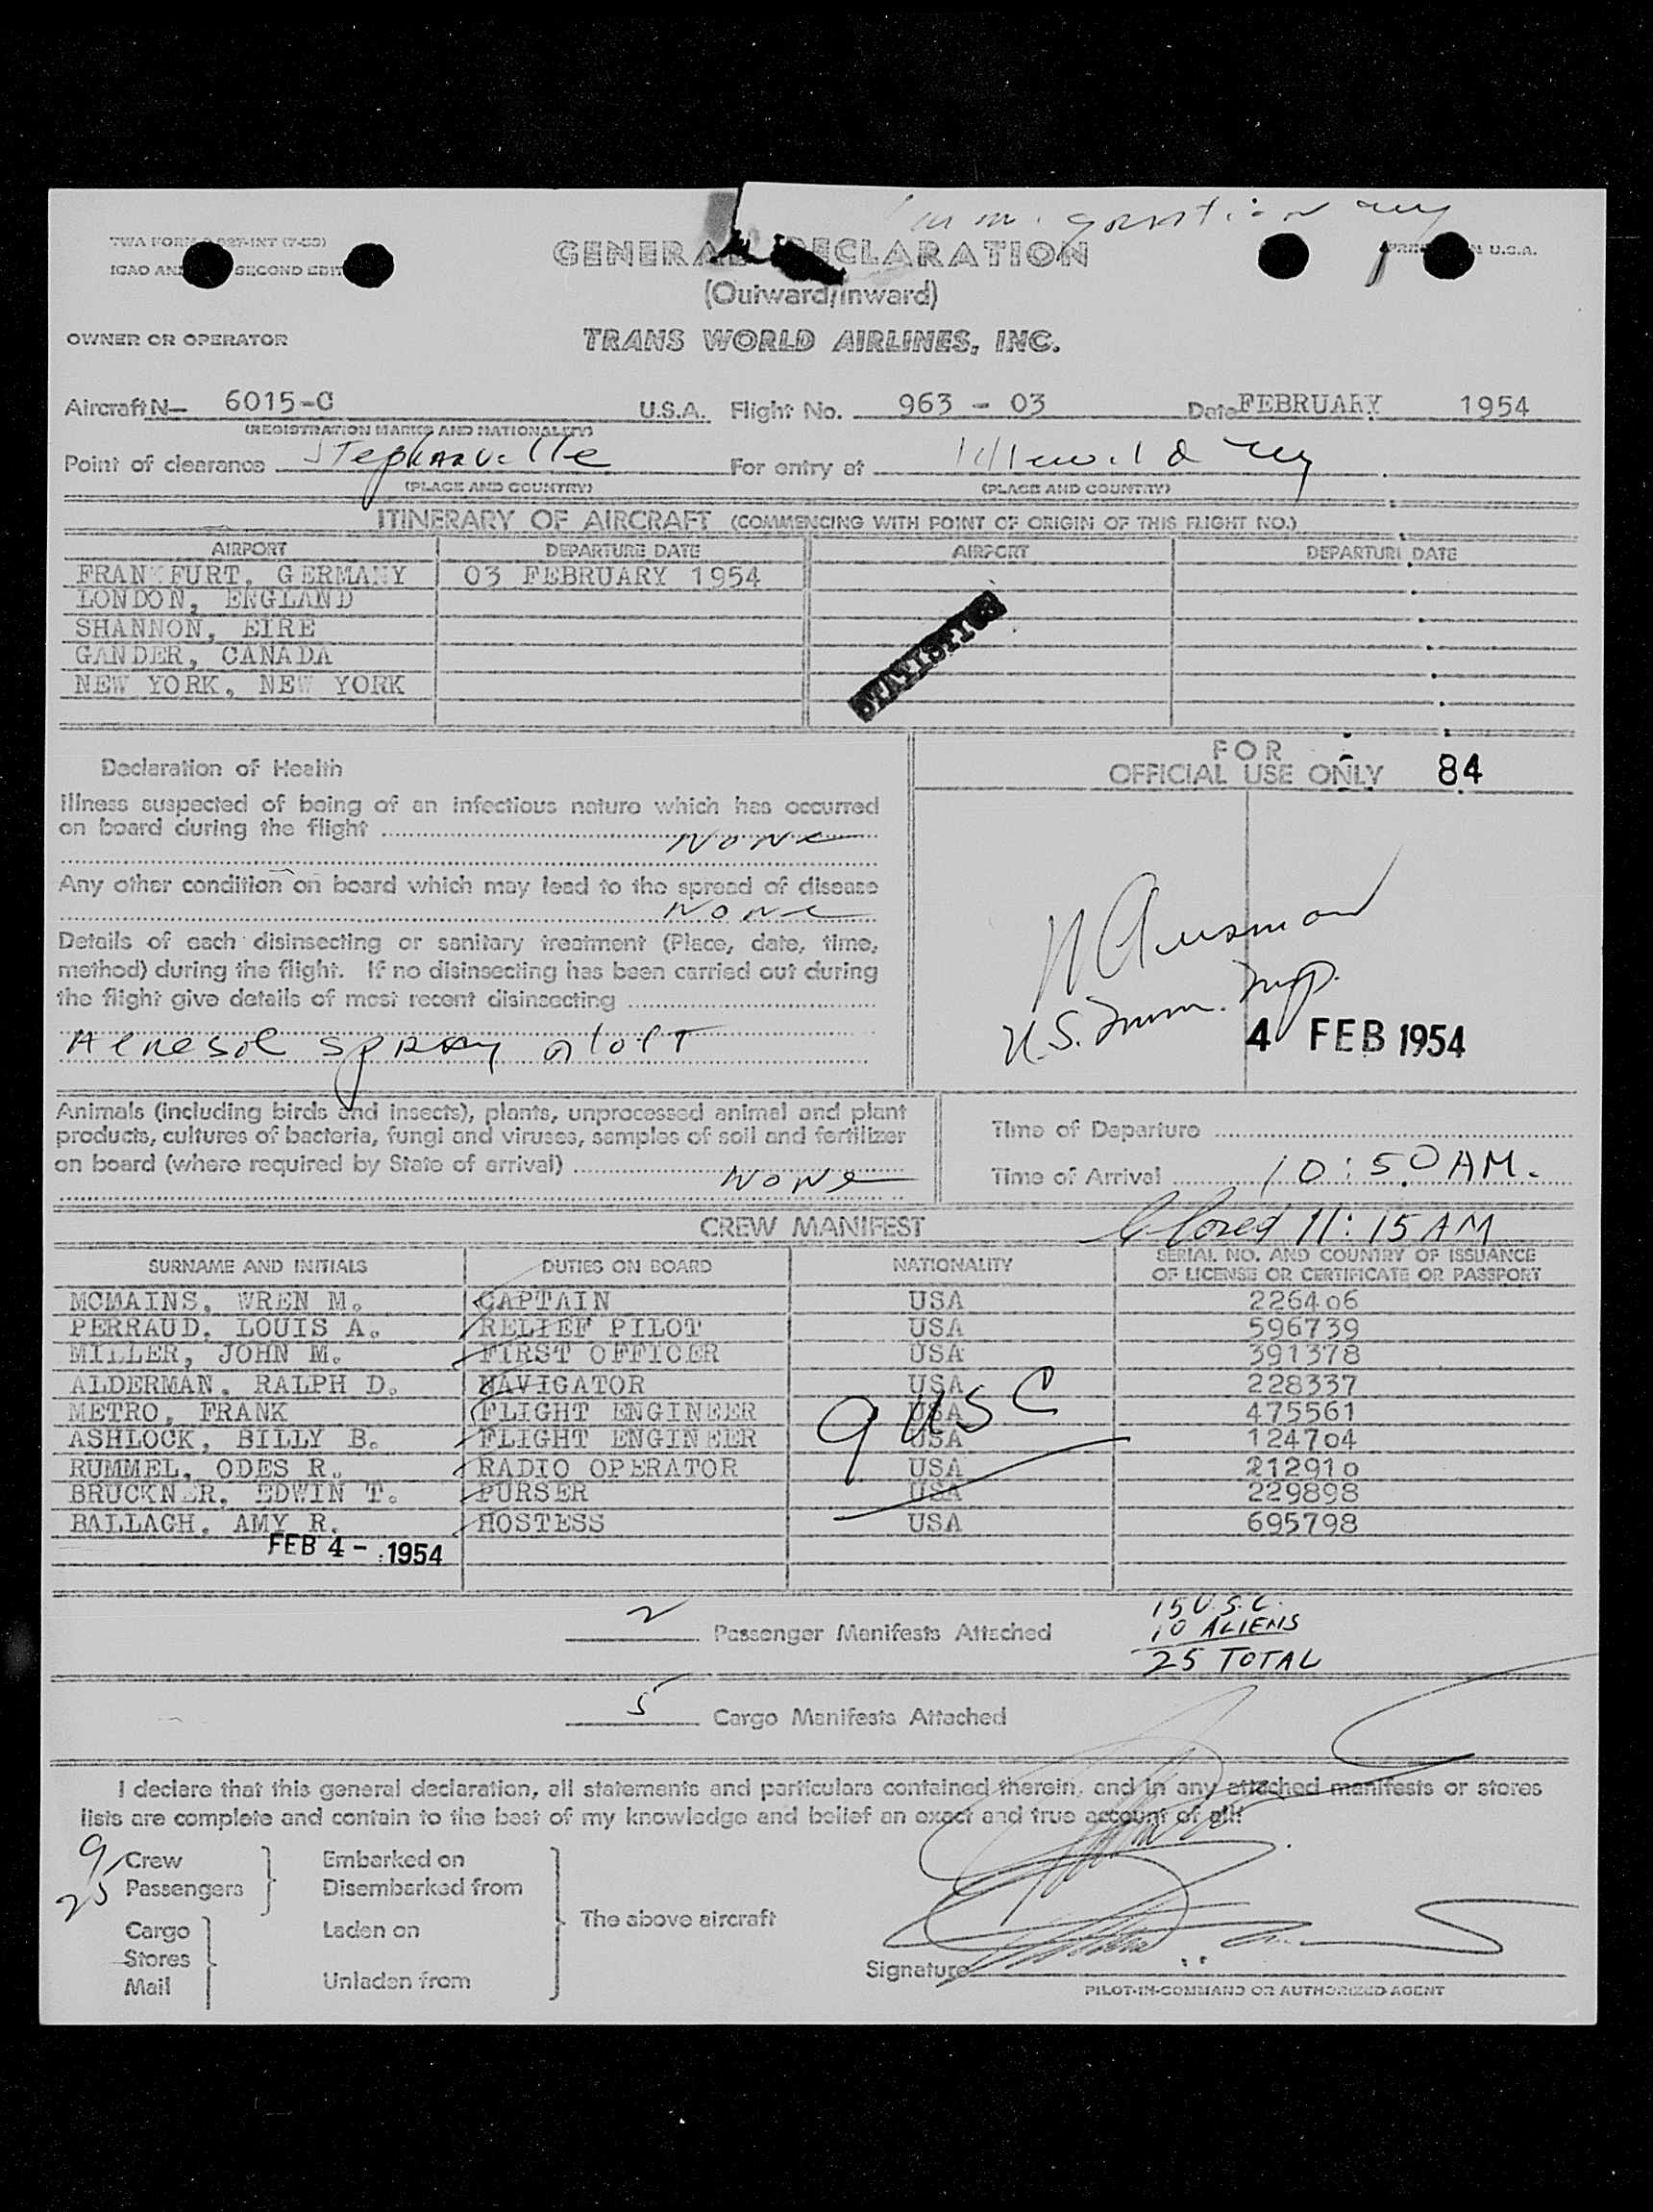 GENERAL DECLARATION
(Outward/Inward)
OWNER OR OPERATOR TRANS WORLD AIRLINES, INC.
Aircraft N— 6015-C U.S.A. Flight No. 963 - 03 Date FEBRUARY 1954
(REGISTRATION MARKS AND NATIONALITY)
Point of clearance Stephenville For entry at Idlewild NY
(PLACE AND COUNTRY) (PLACE AND COUNTRY)
ITINERARY OF AIRCRAFT (COMMENCING WITH POINT OF ORIGIN OF THIS FLIGHT NO.)
AIRPORT DEPARTURE DATE AIRPORT DEPARTURE DATE
FRANKFURT, GERMANY 03 FEBRUARY 1954
LONDON, ENGLAND
SHANNON, EIRE
GANDER, CANADA
NEW YORK, NEW YORK
STATISTICS
FOR
OFFICIAL USE ONLY 84
Declaration of Health
Illness suspected of being of an infectious nature which has occurred
on board during the flight None
Any other condition on board which may lead to the spread of disease
None
Details of each disinsecting or sanitary treatment (Place, date, time,
method) during the flight. If no disinsecting has been carried out during
the flight give details of most recent disinsecting
Aeresol spray aloft
U.S. Imm. Insp.
4 FEB 1954
Animals (including birds and insects), plants, unprocessed animal and plant
products, cultures of bacteria, fungi and viruses, samples of soil and fertilizer
on board (where required by State of arrival) None
Time of Departure
Time of Arrival 10:50 AM.
Closed 11:15 AM
CREW MANIFEST
SURNAME AND INITIALS DUTIES ON BOARD NATIONALITY SERIAL NO. AND COUNTRY OF ISSUANCE
OF LICENSE OR CERTIFICATE OR PASSPORT
MCMAINS, WREN M. CAPTAIN USA 226406
PERRAUD, LOUIS A. RELIEF PILOT USA 596739
MILLER, JOHN M. FIRST OFFICER USA 391378
ALDERMAN, RALPH D. NAVIGATOR USA 228337
METRO, FRANK FLIGHT ENGINEER USA 475561
ASHLOCK, BILLY B. FLIGHT ENGINEER USA 124704
RUMMEL, ODES R. RADIO OPERATOR USA 212910
BRUCKNER, EDWIN T. PURSER USA 229898
BALLAGH, AMY R. HOSTESS USA 695798
9 USC
FEB 4 - 1954
2 Passenger Manifests Attached
15 U.S.C.
10 ALIENS
25 TOTAL
5 Cargo Manifests Attached
I declare that this general declaration, all statements and particulars contained therein, and in any attached manifests or stores
lists are complete and contain to the best of my knowledge and belief an exact and true account of all:
9 Crew Embarked on
25 Passengers Disembarked from
The above aircraft
Cargo Laden on
Stores
Mail Unladen from
Signature
PILOT-IN-COMMAND OR AUTHORIZED AGENT